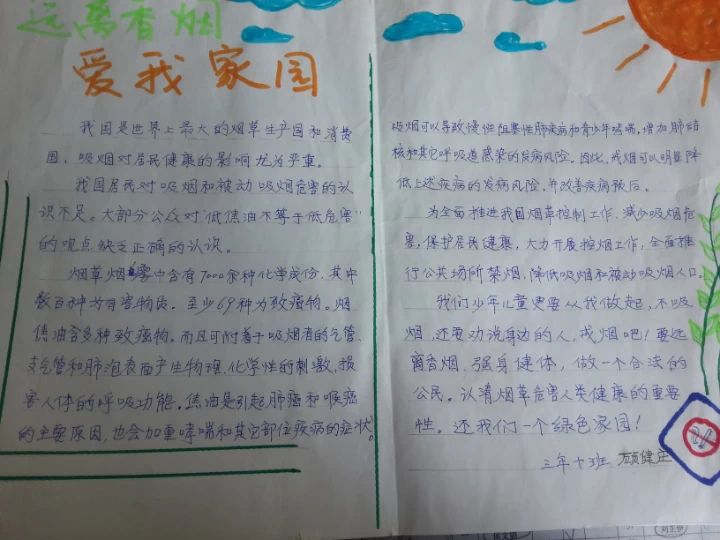 远离香烟
爱我家园
我国是世界上最大的烟草生产国和消费
国，吸烟对居民健康的影响尤为严重。
我国居民对吸烟和被动吸烟危害的认
识不足。大部分公众对"低焦油不等于低危害"
的观点缺乏正确的认识。
烟草烟雾中含有7000余种化学成份，其中
数百种为有害物质，至少69种为致癌物。烟
焦油含多种致癌物。而且可附着于吸烟者的气管、
支气管和肺泡表面产生物理、化学性的刺激，损
害人体的呼吸功能。焦油是引起肺癌和喉癌
的主要原因，也会加重哮喘和其它部位疾病的症状。
吸烟可以导致慢性阻塞性肺疾病和青少年哮喘，增加肺结
核和其它呼吸道感染的发病风险。因此，戒烟可以明显降
低上述疾病的发病风险，并改善疾病预后。
为全面推进我国烟草控制工作，减少吸烟危
害，保护居民健康，大力开展控烟工作，全面推
行公共场所禁烟，降低吸烟和被动吸烟人口。
我们少年儿童更要从我做起，不吸
烟，还要劝说身边的人，戒烟吧！要远
离香烟，强身健体，做一个合法的
公民。认清烟草危害人类健康的重要
性。还我们一个绿色家园！
三年十三班 顾健